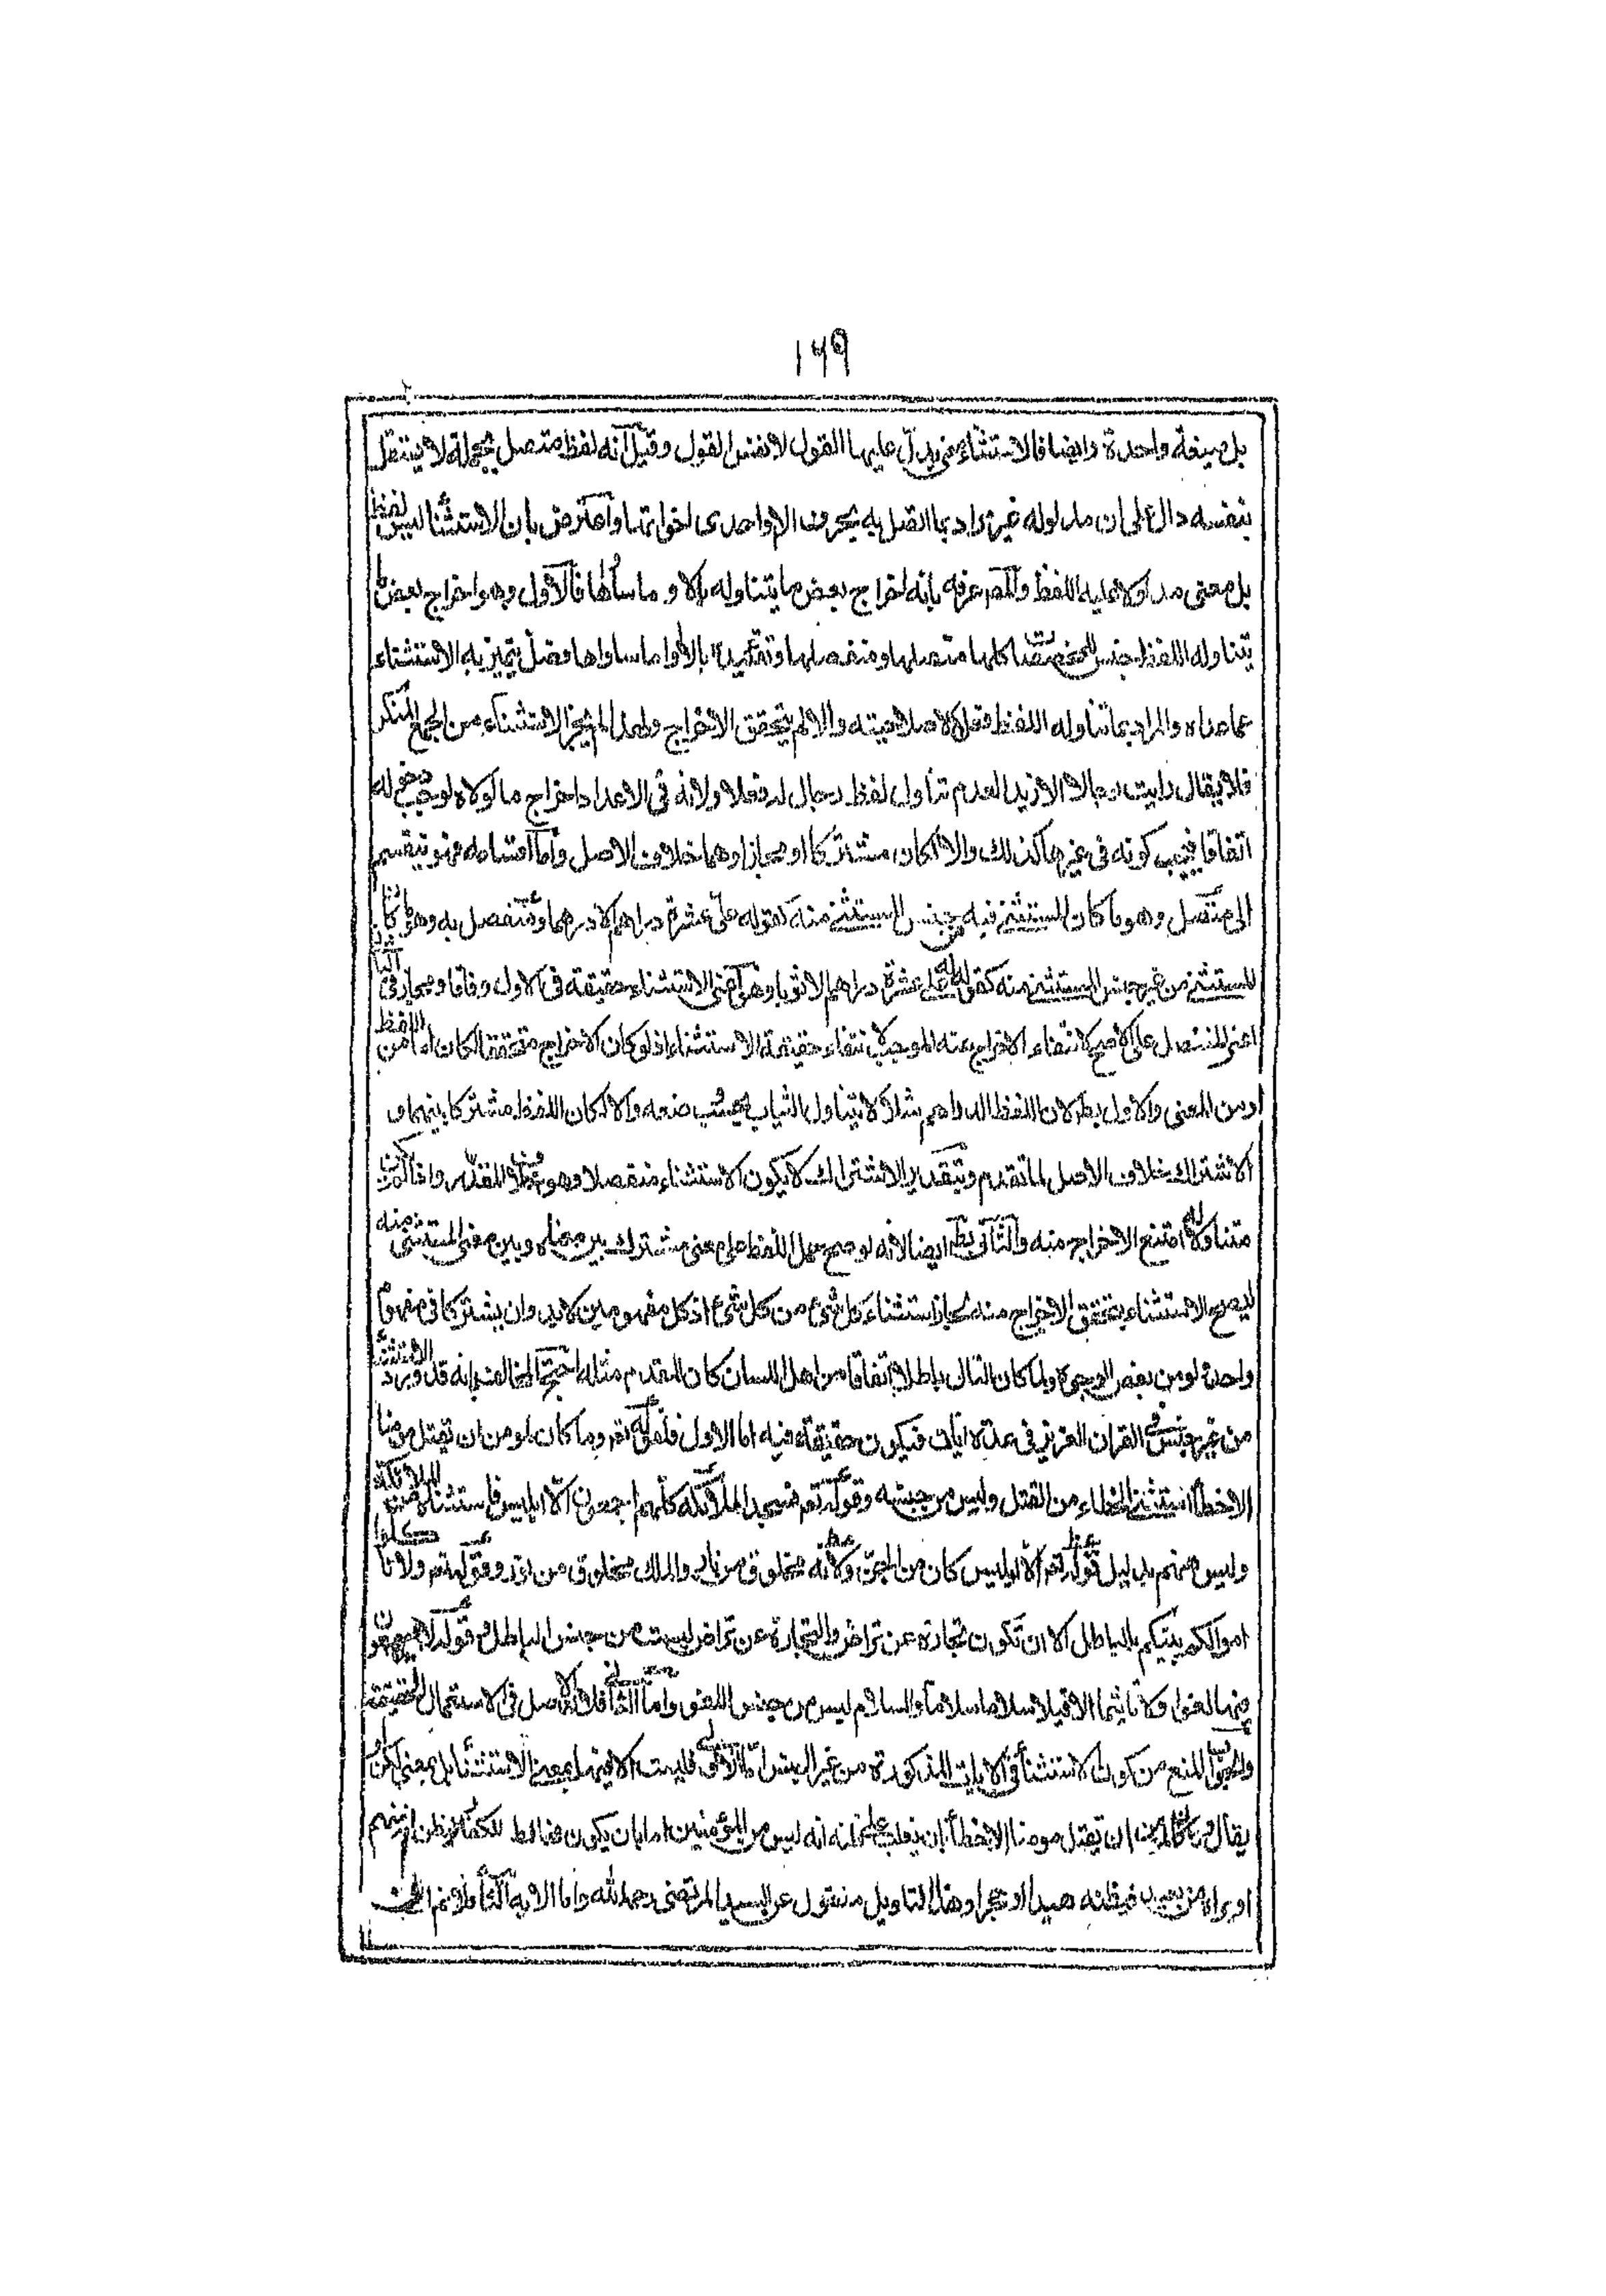 ١٦٩
بل صيغة واحدة وايضا فالاستثناء معنى يدل عليها القول لا نفس القول وقيل انه لفظ متصل بجملة لا يستقل
بنفسه دال على ان مدلوله غير مراد بما اتصل به بحرف الا واحدى اخواتها واعترض بان الاستثنا ليس لفظ
بل معنى مدلولا عليه باللفظ والمصر عرفه بانه اخراج بعض ما يتناوله بالا و ما ساواها فالاول وهو اخراج بعض ما
يتناوله اللفظ جنس للمخصصات كلها متصلها ومنفصلها وتقييده بالا وما ساواها فصل يتميز به الاستثناء
عما عداه والمراد بما تناوله اللفظ فعلا لا صلاحيته والا لم يتحقق الاخراج ولهذا لم يجز الاستثناء من الجمع المنكر
فلا يقال رايت رجالا الا زيدا لعدم تناول لفظ رجال له فعلا ولانه فى الاعداد اخراج ما لولاه لوجب دخوله
اتفاقا فيجب كونه فى غيرها كذلك والا لكان مشتركا او مجازا وهما خلاف الاصل واما اقسامه فهو ينقسم
الى متصل وهو ما كان المستثنى فيه من جنس المستثنى منه كقوله على عشرة دراهم الا درهما ومنفصل به وهو ما كان
المستثنى من غير جنس المستثنى منه كقوله له على عشرة دراهم الا ثوبا وهو اعنى الاستثناء حقيقة فى الاول وفاقا ومجاز فى الثانى
اعنى المنفصل على الاصح لانتفاء الاخراج عنه الموجب لانتفاء حقيقة الاستثناء اذ لو كان الاخراج متحققا لكان اما من اللفظ
او من المعنى والاول بط لان اللفظ الدراهم مثلا لا يتناول الثياب بحسب وضعه والا لكان اللفظ مشتركا بينهما و
الاشتراك خلاف الاصل لما تقدم وبتقدير الاشتراك لا يكون الاستثناء منفصلا وهو خلاف المقدر واذا لم يكن
متناولا له امتنع الاخراج منه والثانى بط ايضا لانه لو صح حمل اللفظ على معنى مشترك بين معناه وبين معنى المستثنى منه
ليصح الاستثناء بتحقق الاخراج منه لجاز استثناء كل شئ من كل شئ اذ كل مفهومين لا بد وان يشتركا فى مفهوم
واحد ولو من بعض الوجوه ولما كان التالى باطلا اتفاقا من اهل اللسان كان المقدم مثله احتج المخالف بانه قد ورد الاستثنا
من غير جنس فى القران العزيز فى عدة ايات فيكون حقيقة فيه اما الاول فلقوله تعر وما كان لمومن ان يقتل مومنا
الا خطأ استثنى الخطاء من القتل وليس من جنسه وقوله تعر فسجد الملائكة كلهم اجمعون الا ابليس فاستثناه من الملائكة
وليس منهم بدليل قوله تعر الا ابليس كان من الجن ولانه مخلوق من نار والملك مخلوق من نور وقوله تعر ولا تاكلوا
اموالكم بينكم بالباطل الا ان تكون تجارة عن تراض والتجارة عن تراض ليست من جنس الباطل وقوله لا يسمعون
فيها لغوا ولا تاثيما الا قيلا سلاما سلاما والسلام ليس من جنس اللغو واما الثانى فلان الاصل فى الاستعمال الحقيقة
والجواب المنع من كون الاستثناء فى الايات المذكورة من غير الجنس اما الاولى فليست الا فيها بمعنى الاستثنا بل بمعنى لكن او
يقال وما كان لمومن ان يقتل مومنا الا خطأ بان يغلب على ظنه انه ليس من المؤمنين اما بان يكون مخالط للكفار فيظن انه منهم
او يراه من بعيد فيظنه صيدا او حجرا وهذا التاويل منقول عن السيد المرتضى رحمه الله واما الاية الثا فلا نم ان الجن